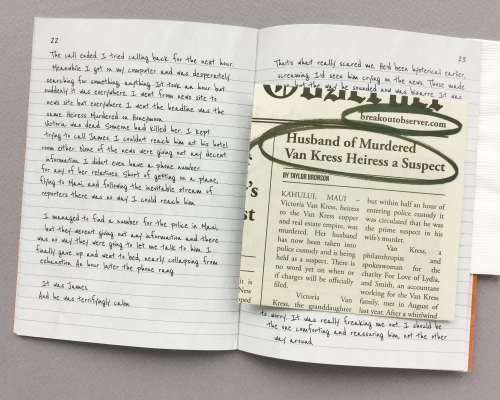 22
The call ended. I tried calling back for the next hour.
Meanwhile I got on my computer and was desperately
searching for something, anything. It took an hour but
suddenly it was everywhere. I went from news site to
news site but everywhere I went the headline was the
same. Heiress Murdered on Honeymoon.
Victoria was dead. Someone had killed her. I kept
trying to call James. I couldn't reach him at his hotel
room either. None of the news were giving out any decent
information. I didn't even have a phone number
for any of her relatives. Short of getting on a plane,
flying to Maui, and following the inevitable stream of
reporters there was no way I could reach him.
I managed to find a number for the police in Maui,
but they weren't giving out any information and there
was no way they were going to let me talk to him. I
finally gave up and went to bed, nearly collapsing from
exhaustion. An hour later the phone rang.
It was James.
And he was terrifyingly calm.
23
That's what really scared me. He'd been hysterical earlier,
screaming. I'd seen him crying on the news. Those made
but the way he sounded now was bizarre. It was
breakoutobserver.com
Husband of Murdered
Van Kress Heiress a Suspect
BY TAYLOR BRONSON
KAHULUI, MAUI –
Victoria Van Kress, heiress
to the Van Kress copper
and real estate empire, was
murdered. Her husband
has now been taken into
police custody and is being
held as a suspect. There is
no word yet on when or
if charges will be officially
filed.
Victoria Van
Kress, the granddaughter
but within half an hour of
entering police custody it
was circulated that he was
the prime suspect in his
wife's murder.
Van Kress, a
philanthropist and
spokeswoman for the
charity For Love of Lydia,
and Smith, an accountant
working for the Van Kress
family, met in August of
last year. After a whirlwind
's
st
New
oped
is a
to worry. It was really freaking me out. I should be
the one comforting and reassuring him, not the other
way around.